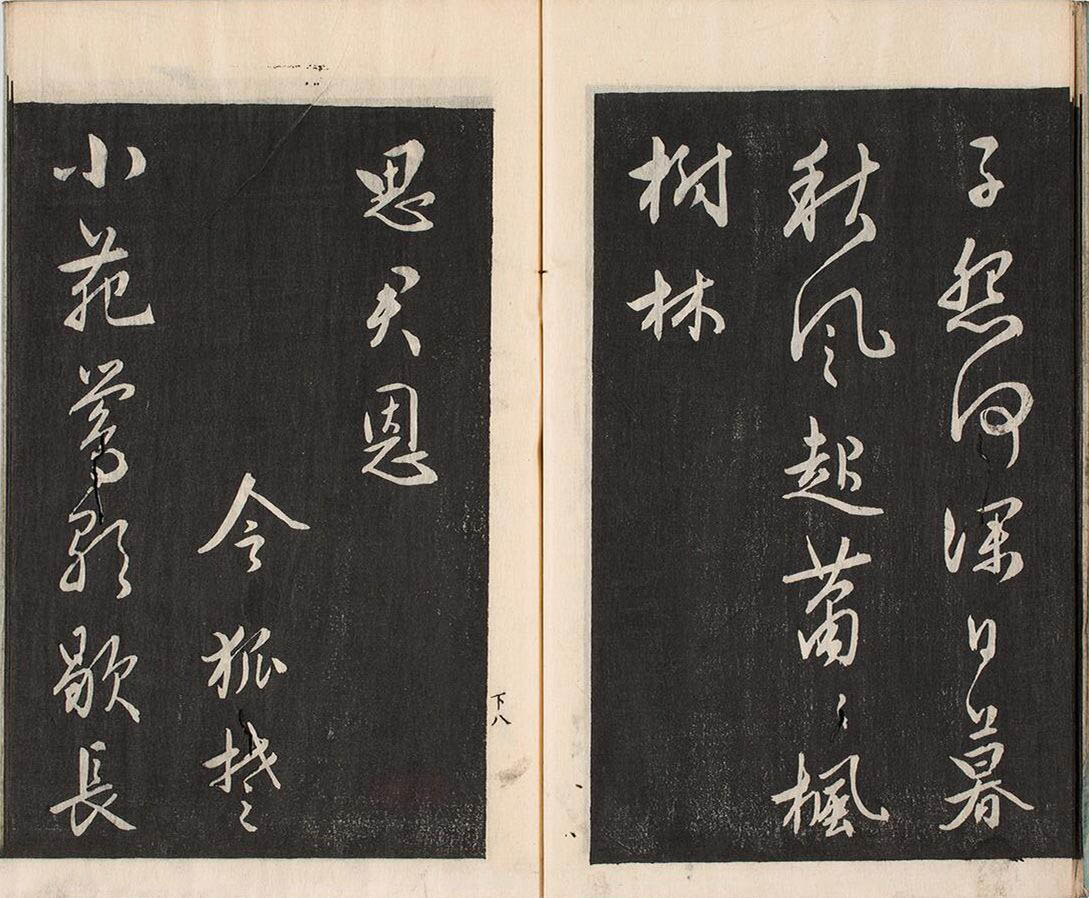 子怨何深日暮
秋風起蕭〻楓
樹林
下八
思君恩
令狐楚
小苑鶯歌歇長